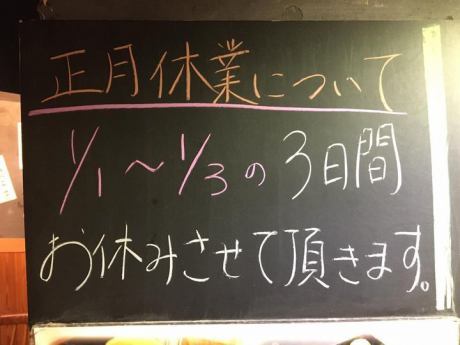 正月休業について
1/1〜1/3の3日間
お休みさせて頂きます。